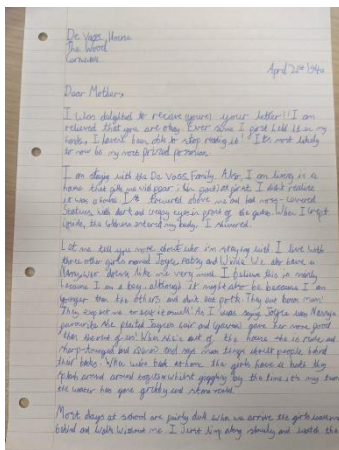 De Vass House
The Wood
Cornwall
April 21st 1940
Dear Mother,
I was delighted to receive your letter!! I am
relieved that you are okay. Ever since I first held it in my
hands, I haven't been able to stop reading it! It's most likely
to now be my most prized possession.
I am staying with the De Vass Family. Also, I am living in a
home that gave me
it was a home. It towered above me and had moss-covered
statues with dark and creepy eyes in front of the gates. When I crept
inside, the coldness entered my body, I shivered.
Let me tell you more about who I'm staying with. I live with
three other girls named Joyce, Patsy and We also have a
like me very much. I believe this is mainly
because I am a boy, although it might also be because I am
younger than the others and don't eat both. They
They expect me to As I was saying Joyce was
favourite. She plaited Joyces hair and gave her more food
than the rest of us! When she's out of the house she is rude and
sharp-tongued and says mean things about people behind
their backs. When we're back at home the girls have a bath. They
by the time it's my turn
the water has gone
Most days at school are fairly dull. When we arrive the girls
behind and walk without me. I just limp along slowly and watch the